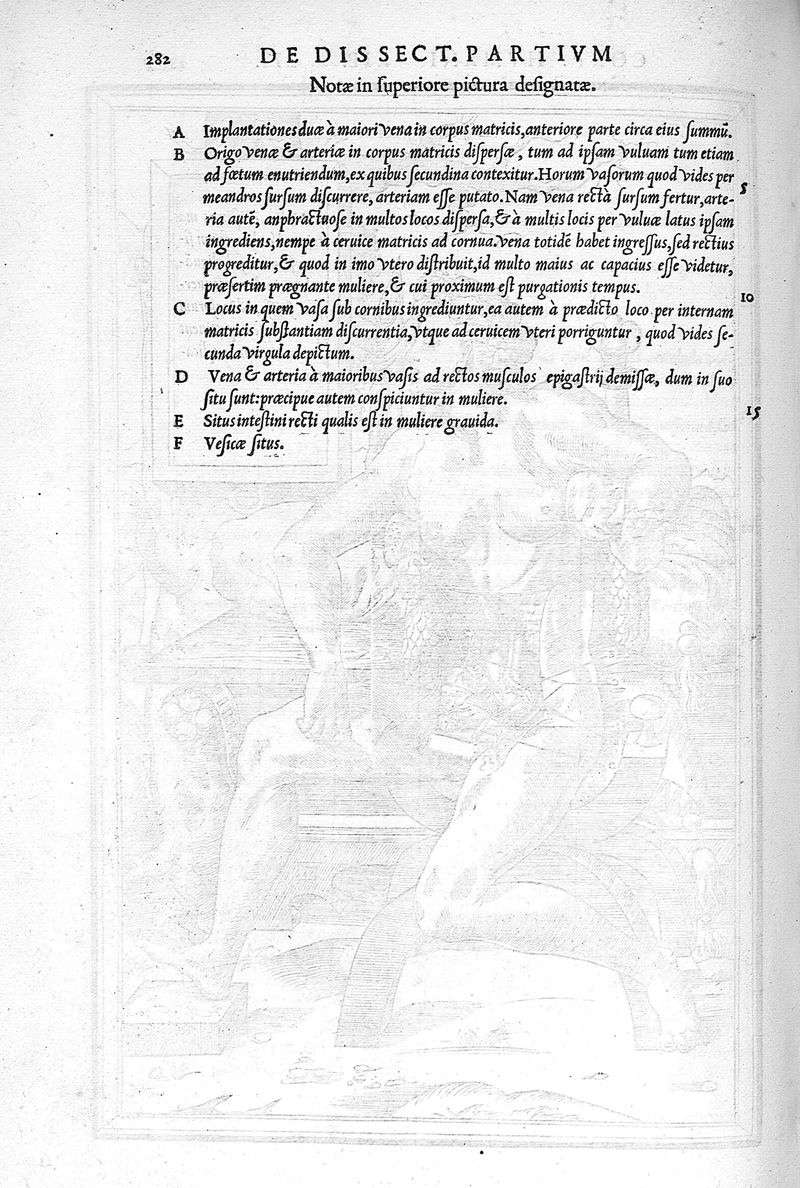 282 DE DISSECT. PARTIVM
Notæ in ſuperiore pictura deſignatæ.
A Implantationes duæ à maiori vena in corpus matricis, anteriore parte circa eius ſummũ.
B Origo venæ & arteriæ in corpus matricis diſperſæ, tum ad ipſam vuluam tum etiam
ad fœtum enutriendum, ex quibus ſecundina contexitur. Horum vaſorum quod vides per
5
meandros ſurſum diſcurrere, arteriam eſſe putato. Nam vena rectà ſurſum fertur, arte-
ria autẽ, anphractuoſe in multos locos diſperſa, & à multis locis per vuluæ latus ipſam
ingrediens, nempe à ceruice matricis ad cornua. vena totidẽ habet ingreſſus, ſed rectius
progreditur, & quod in imo vtero diſtribuit, id multo maius ac capacius eſſe videtur,
præſertim prægnante muliere, & cui proximum eſt purgationis tempus.
10
C Locus in quem vaſa ſub cornibus ingrediuntur, ea autem à prædicto loco per internam
matricis ſubſtantiam diſcurrentia, vtque ad ceruicem vteri porriguntur, quod vides ſe-
cunda virgula depictum.
D Vena & arteria à maioribus vaſis ad rectos muſculos epigaſtrij demiſſæ, dum in ſuo
ſitu ſunt: præcipue autem conſpiciuntur in muliere.
15
E Situs inteſtini recti qualis eſt in muliere grauida.
F Veſicæ ſitus.